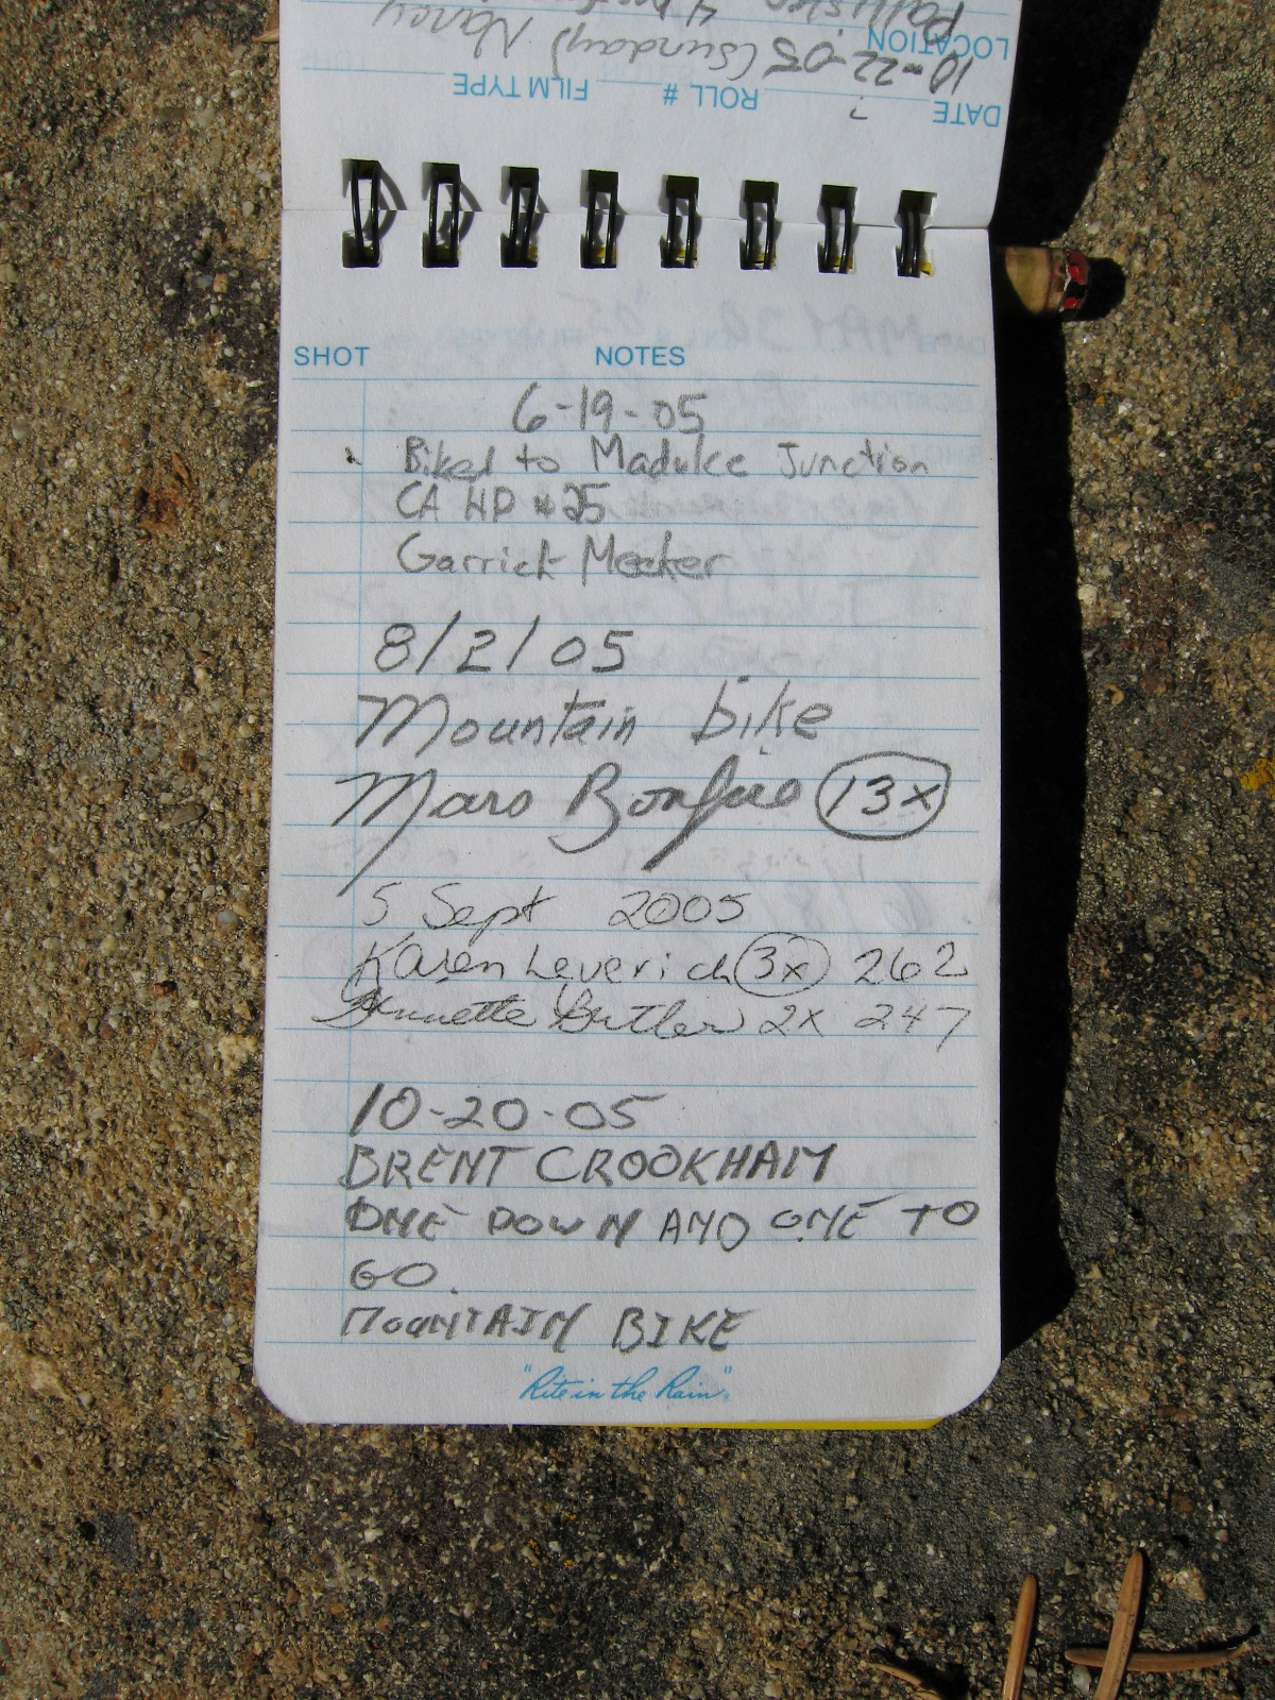 DATE ROLL # FILM TYPE
10-22-05 (Sunday) Nancy
LOCATION
SHOT NOTES
6-19-05
Biked to Madulce Junction
CA HP #25
Garrick Meeker
8/2/05
Mountain bike
Maro 13x
5 Sept 2005
Karen Leverich 3x 262
Annette Butler 2x 247
10-20-05
BRENT CROOKHAM
ONE DOWN AND ONE TO
GO.
MOUNTAIN BIKE
"Rite in the Rain"